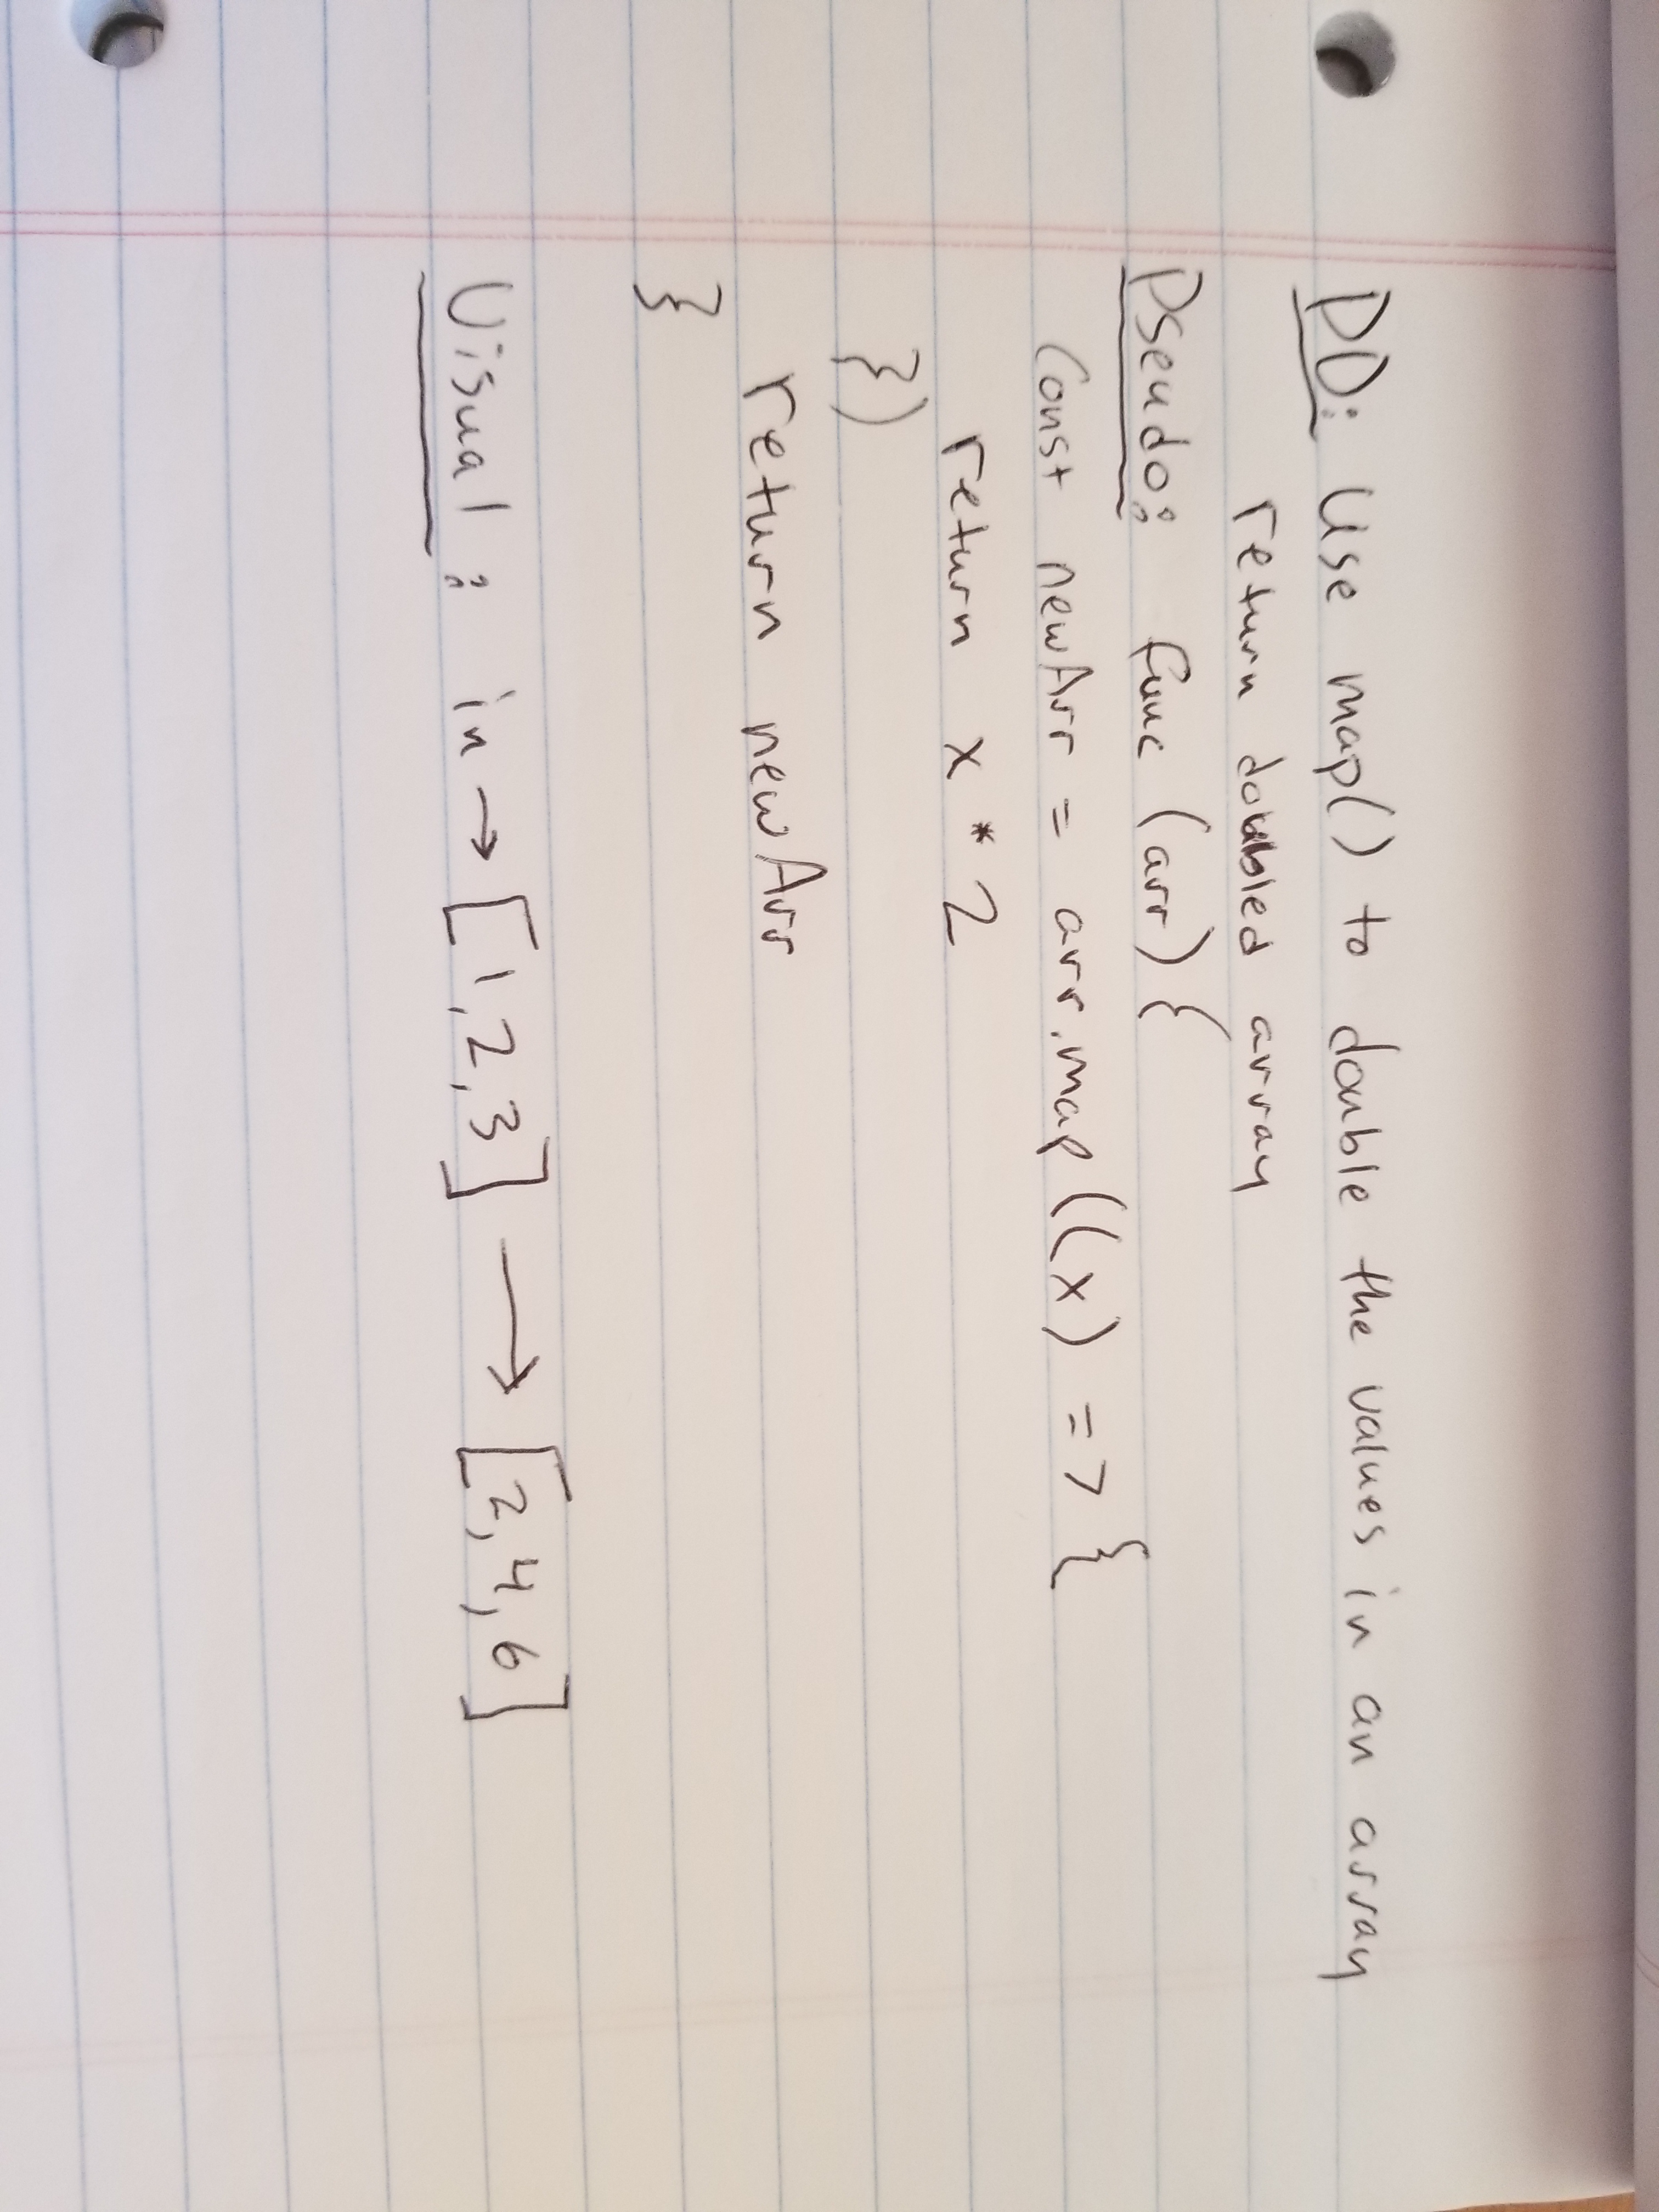 PD: Use map() to double the values in an array
return doubled array
Pseudo: func (arr) {
const newArr = arr.map((x) => {
return x * 2
})
return newArr
}
Visual: in → [1,2,3] → [2,4,6]